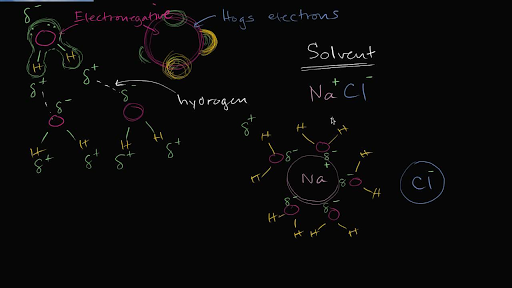 δ⁻
Electronegative
Hogs electrons
O
H H
δ⁺ δ⁺
Solvent
Na⁺Cl⁻
hydrogen
δ⁻ δ⁻
O O
H H H H
δ⁺ δ⁺ δ⁺ δ⁺
δ⁺
H H H
O δ⁻ O δ⁻ H
H
Na⁺
δ⁻ O H
Cl⁻
δ⁻ δ⁻
H O O
H H H